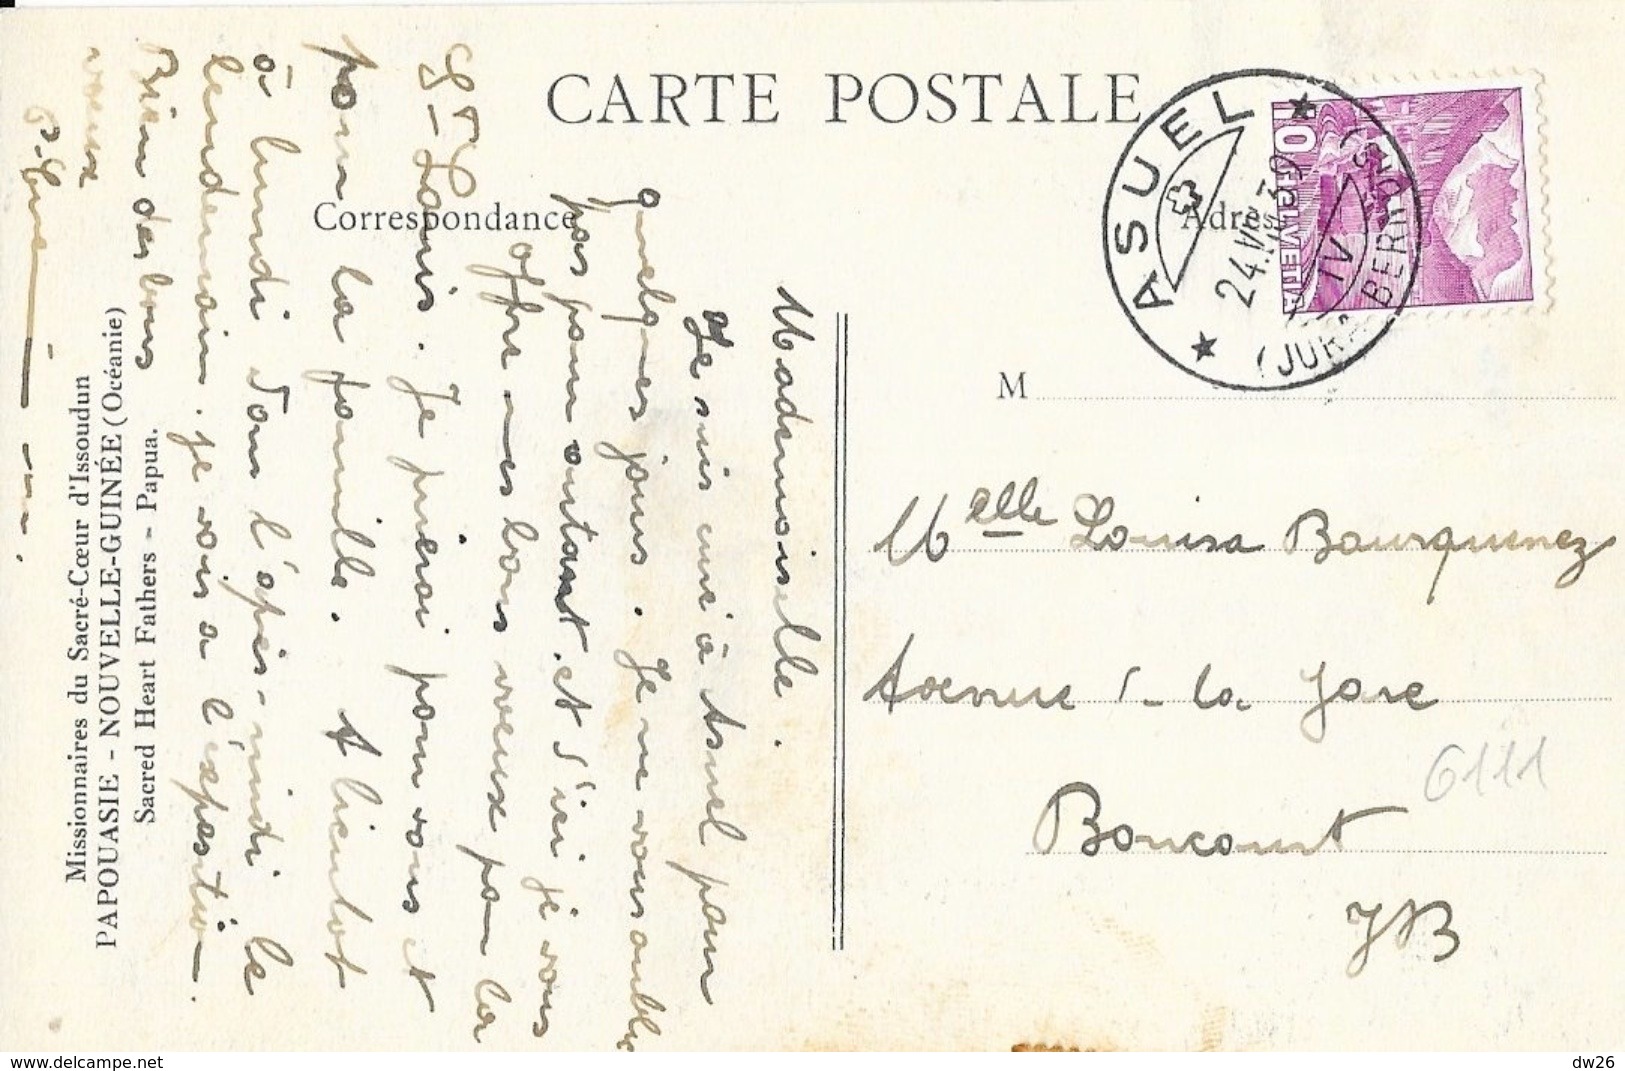 CARTE POSTALE
Correspondance
Adresse
ASUEL
24.VII.39
IV
(JURA BERNOIS)
10 HELVETIA
M
Melle Louisa Bourquenez
Avenue d-la Gare
Boncourt
JB
6111
Mademoiselle.
Je suis curé à Asuel pour
quelques jours. Je ne vous oublie
pas pour autant et d'ici je vous
offre mes bons voeux pour la
St-Louis. Je prierai pour vous et
pour la famille. A bientot
à lundi dans l'après-midi le
lendemain je vais a l'exposition.
Bien des bons
voeux
Missionnaires du Sacré-Cœur d'Issoudun
PAPOUASIE - NOUVELLE-GUINÉE (Océanie)
Sacred Heart Fathers - Papua.
dw26